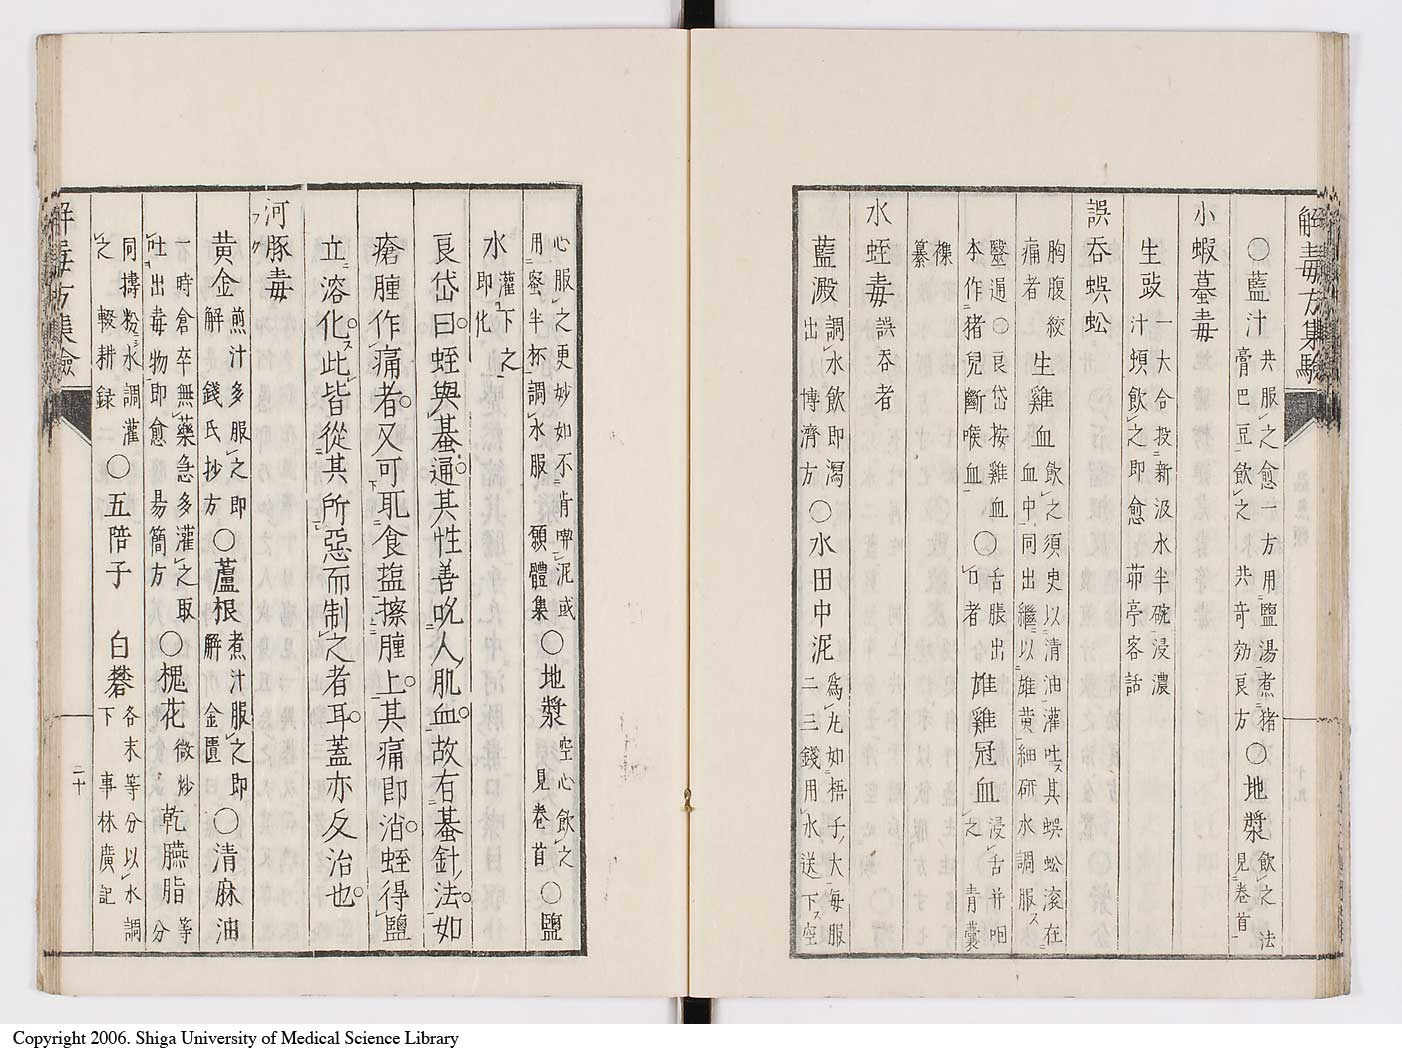 解毒方集驗
○藍汁 共服之愈一方用鹽湯煮猪膏巴豆飲之 共奇効良方 ○地漿 飲之法見卷首
小蝦蟇毒
生豉 一大合投新汲水半碗浸濃汁頓飲之即愈 茆亭客話
誤吞蜈蚣
胸腹絞痛者 生雞血 飲之須史以清油灌吐其蜈蚣滚在血中同出繼以雄黄細研水調服
醫通○良岱按雞血猪兒血 本作猪兒斷喉血 ○舌脹出口者 雄雞冠血 浸舌并咽之 青囊
襍纂
水蛭毒 誤吞者
藍澱 調水飲即瀉出 博濟方 ○水田中泥 爲丸如梧子大每服二三錢用水送下空
心服之更妙如不肯啣泥或用蜜半杯調水服 頤體集 ○地漿 空心飲之見卷首 ○鹽
水 灌下之即化
良岱曰蛭與蟇通其性善吮人肌血故有蟇針法如
瘡腫作痛者又可耴食塩擦腫上其痛即消蛭得鹽
立溶化此皆從其所惡而制之者耳蓋亦反治也
河豚毒
フグ
黄金 煎汁多服之即解 錢氏抄方 ○蘆根 煮汁服之即解 金匱 ○清麻油
一時倉卒無藥急多灌之取吐出毒物即愈 易簡方 ○槐花 微炒 乾臙脂 等分
同擣粉水調灌之 輟耕録 ○五陪子 白礬 各末等分以水調下 事林廣記
解毒方集驗
二十
Copyright 2006. Shiga University of Medical Science Library